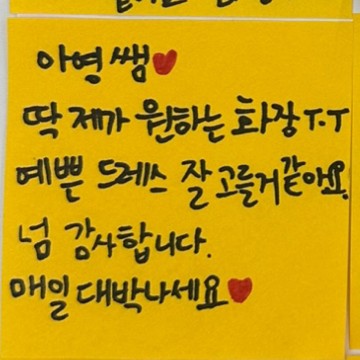 아영쌤♥
딱 제가 원하는 화장T.T
예쁜 드레스 잘 고를거같아요.
넘 감사합니다.
매일 대박나세요♥